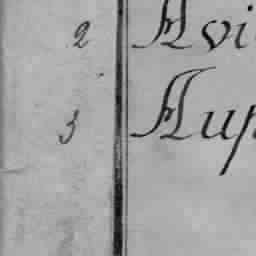 2 Avi
3 Aup